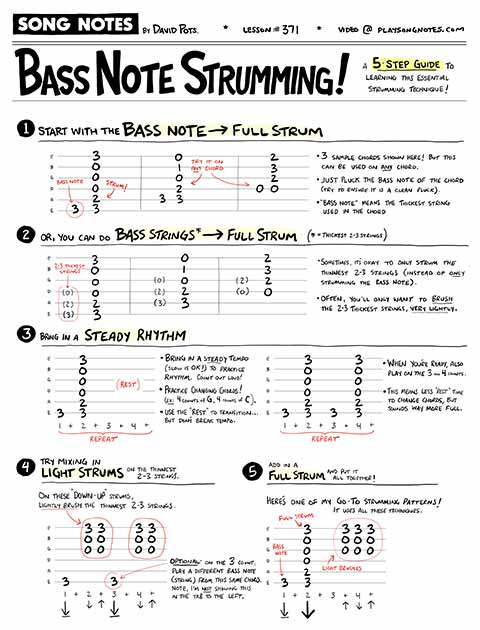 SONG NOTES BY DAVID POTS. * LESSON # 371 * VIDEO @ PLAYSONGNOTES.COM
BASS NOTE STRUMMING!
A 5-STEP GUIDE TO
LEARNING THIS ESSENTIAL
STRUMMING TECHNIQUE!
1 START WITH THE BASS NOTE → FULL STRUM
E 3 0 2
B 0 1 3
G 0 0 2
D 0 2 0 0
A 2 3 3
E 3 3
BASS NOTE
STRUM!
TRY IT ON
ANY CHORD
• 3 SAMPLE CHORDS SHOWN HERE! BUT THIS
CAN BE USED ON ANY CHORD.
• JUST PLUCK THE BASS NOTE OF THE CHORD
(TRY TO ENSURE IT IS A CLEAN PLUCK).
• "BASS NOTE" MEANS THE THICKEST STRING
USED IN THE CHORD
2 OR, YOU CAN DO BASS STRINGS* → FULL STRUM (* = THICKEST 2-3 STRINGS)
2-3 THICKEST
STRINGS
E 3 0 2
B 0 1 3
G 0 (0) 0 (2) 2
D (0) 0 (2) 2 (0) 0
A (2) 2 (3) 3
E (3) 3
• SOMETIMES, IT'S OKAY TO ONLY STRUM THE
THINNEST 2-3 STRINGS (INSTEAD OF ONLY
STRUMMING THE BASS NOTE).
• OFTEN, YOU'LL ONLY WANT TO BRUSH
THE 2-3 THICKEST STRINGS, VERY LIGHTLY.
3 BRING IN A STEADY RHYTHM
E 3
B 0
G 0
D 0
A 2
E 3 3
(REST)
1 + 2 + 3 + 4 +
REPEAT
• BRING IN A STEADY TEMPO
(SLOW IS OK!) TO PRACTICE
RHYTHM. COUNT OUT LOUD!
• PRACTICE CHANGING CHORDS!
(EX: 4 COUNTS OF G, 4 COUNTS OF C).
• USE THE "REST" TO TRANSITION...
BUT DON'T BREAK TEMPO.
E 3 3
B 0 0
G 0 0
D 0 0
A 2 2
E 3 3 3 3
1 + 2 + 3 + 4 +
REPEAT
• WHEN YOU'RE READY, ALSO
PLAY ON THE 3 AND 4 COUNTS.
• THIS MEANS LESS "REST" TIME
TO CHANGE CHORDS, BUT
SOUNDS WAY MORE FULL.
4 TRY MIXING IN
LIGHT STRUMS ON THE THINNEST
2-3 STRINGS.
ON THESE "DOWN-UP" STRUMS,
LIGHTLY BRUSH THE THINNEST 2-3 STRINGS.
E 3 3 3 3
B 0 0 0 0
G 0 0 0 0
D
A
E 3 3
1 + 2 + 3 + 4 +
↓ ↓ ↑ ↓ ↓ ↑
OPTIONAL - ON THE 3 COUNT,
PLAY A DIFFERENT BASS NOTE
(STRING) FROM THIS SAME CHORD.
NOTE, I'M NOT SHOWING THIS
IN THE TAB TO THE LEFT.
5 ADD IN A
FULL STRUM AND PUT IT
ALL TOGETHER!
HERE'S ONE OF MY GO-TO STRUMMING PATTERNS!
IT USES ALL THESE TECHNIQUES.
FULL STRUM
BASS
NOTE
LIGHT BRUSHES
E 3 3 3 3
B 0 0 0 0
G 0 0 0 0
D 0
A 2
E 3 3
1 + 2 + 3 + 4 +
↓ ↓ ↑ ↓ ↑